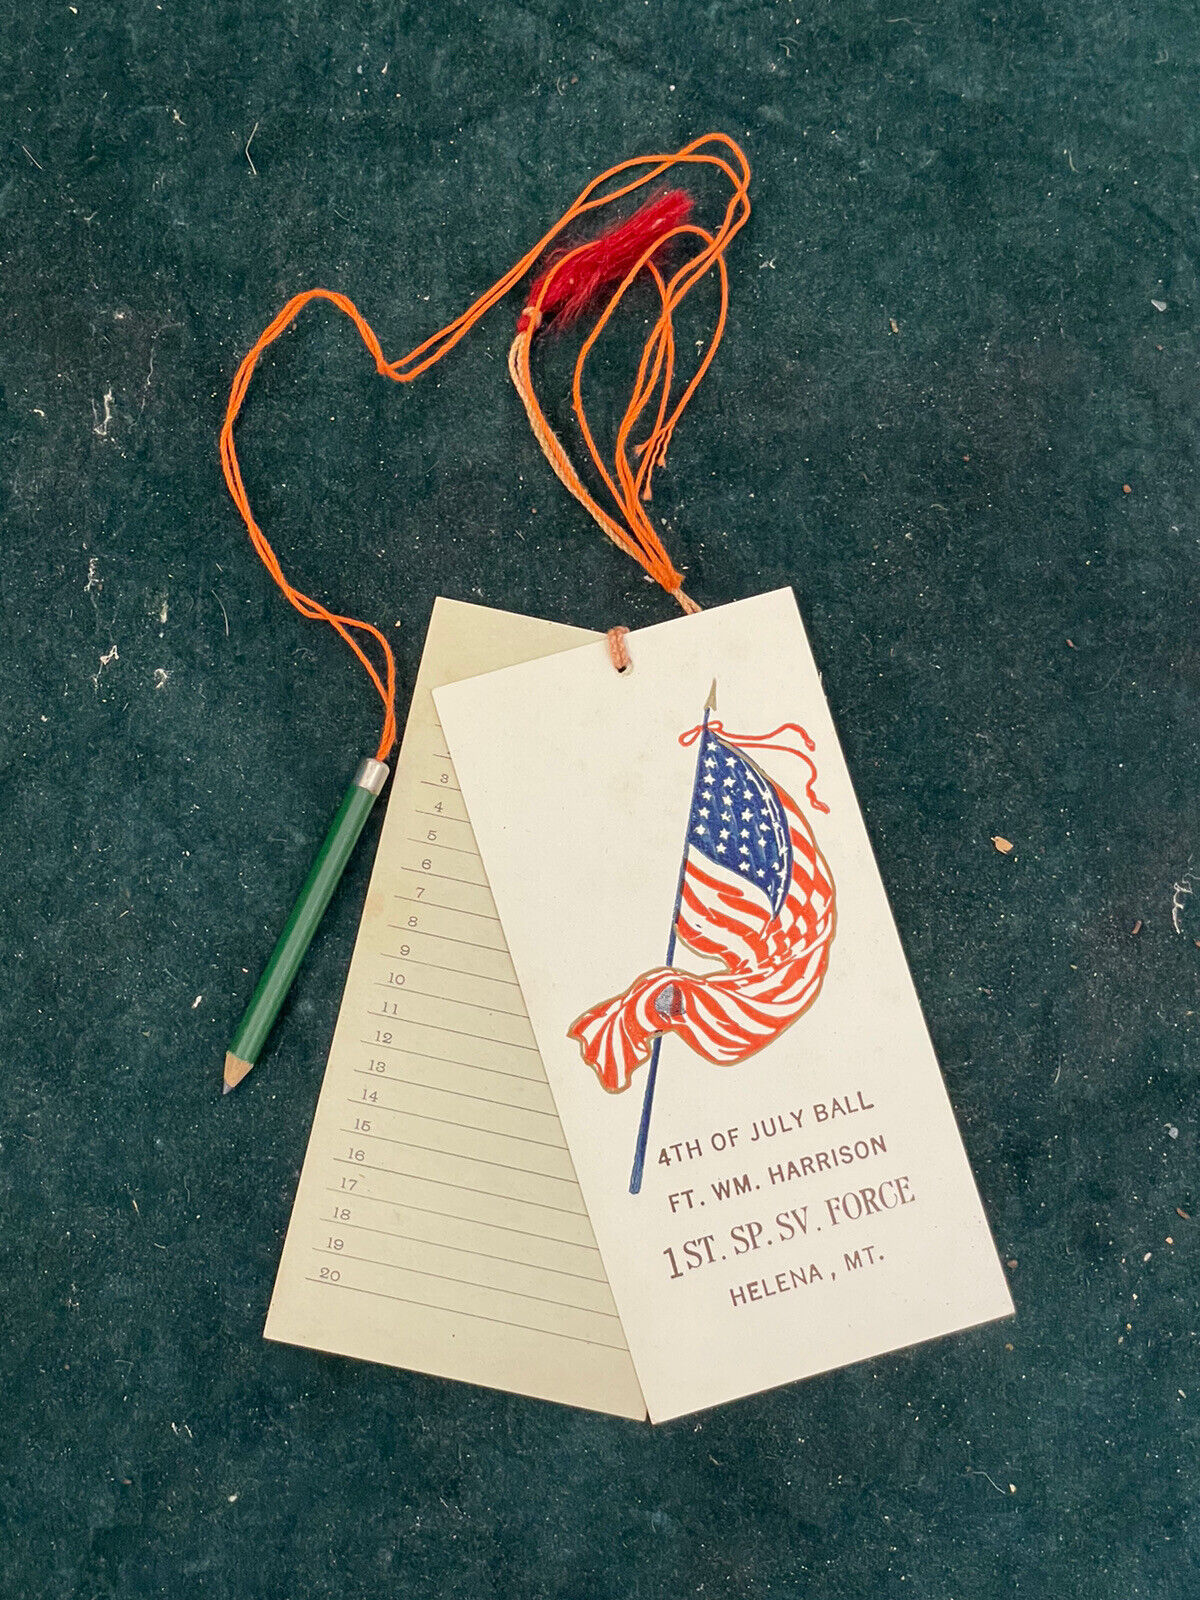 3
4
5
6
7
8
9
10
11
12
13
14
15
16
17
18
19
20
4TH OF JULY BALL
FT. WM. HARRISON
1ST. SP. SV. FORCE
HELENA, MT.